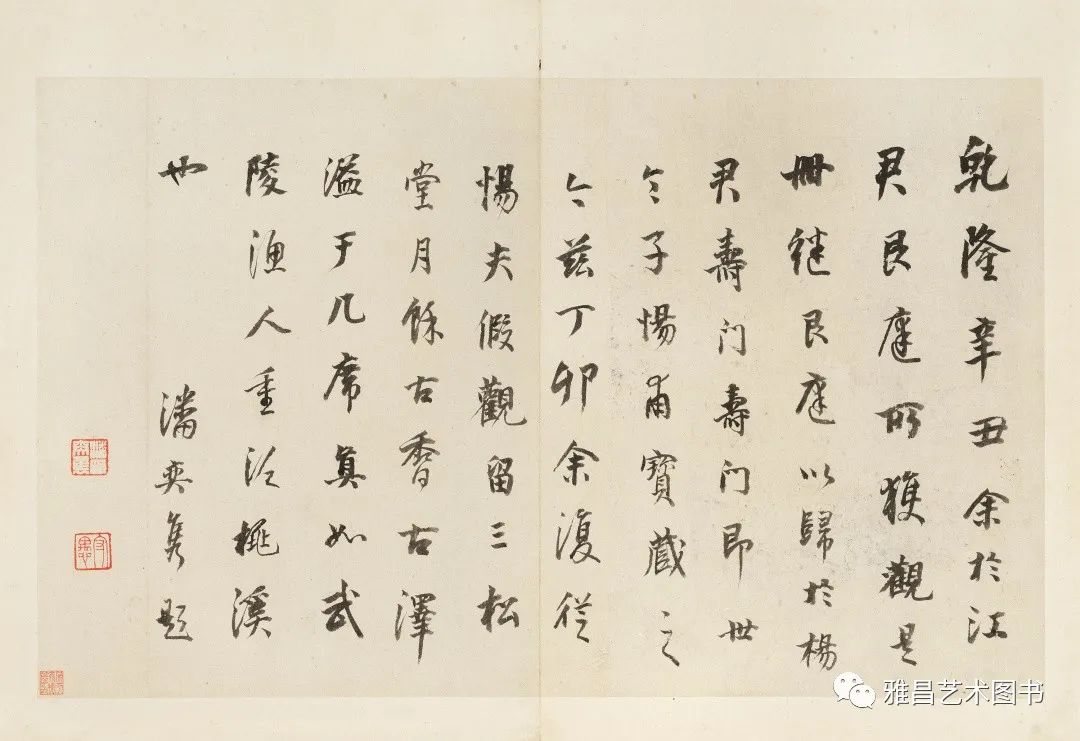 乾隆辛丑余於江
君艮庭所獲觀是
冊継艮庭以歸於楊
君壽门壽门即世
令子惕甫寶藏之
今兹丁卯余復從
惕夫假觀留三松
堂月餘古香古澤
溢于几席真如武
陵漁人重泛桃溪
也
潘奕隽題
雅昌艺术图书